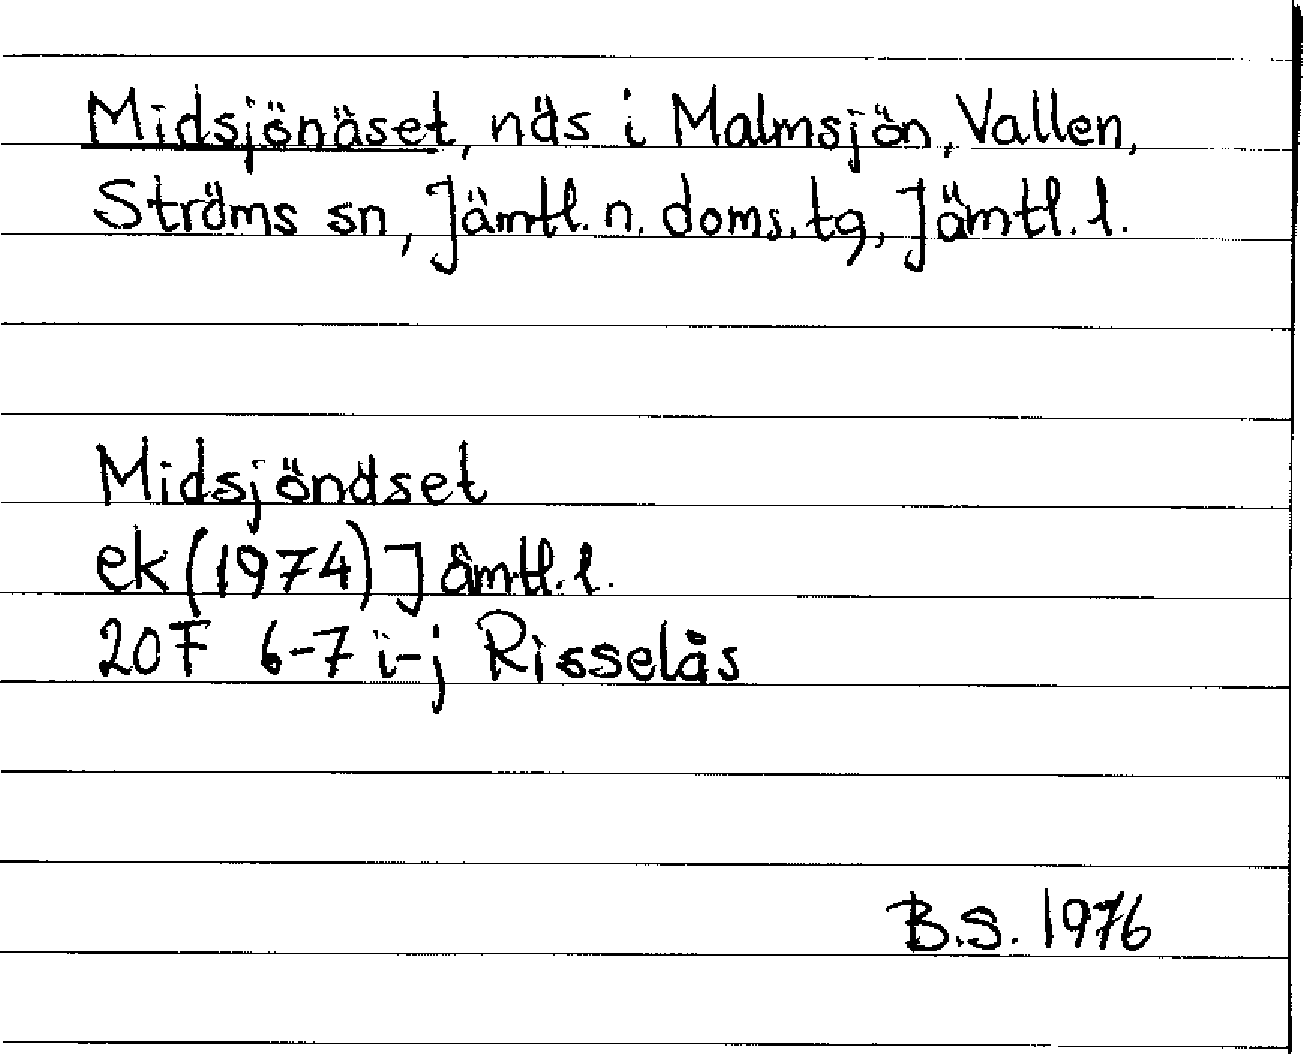 Midsjönäset, näs i Malmsjön, Vallen,
Ströms sn, Jämtl. n. doms. tg, Jämtl. l.
Midsjönäset
ek (1974) Jämtl. l.
20F 6-7 i-j Risselås
B.S. 1976